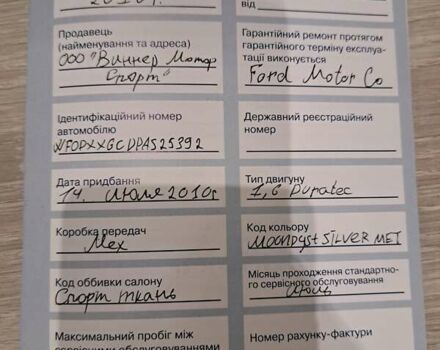 2010г.
від
Продавець
(найменування та адреса)
ООО "Виннер Мотор
Спорт"
Гарантійний ремонт протягом
гарантійного терміну експлуа-
тації виконується
Ford Motor Co
Ідентифікаційний номер
автомобілю
WFOPXXGCDPAS25392
Державний реєстраційний
номер
Дата придбання
14. Июля 2010г
Тип двигуну
1,6 Duratec
Коробка передач
Мех
Код кольору
MOONDUST SILVER MET
Код оббивки салону
Спорт ткань
Місяць проходження стандартно-
го сервісного обслуговування
Июль
Максимальний пробіг між
сервісними обслуговуваннями
Номер рахунку-фактури